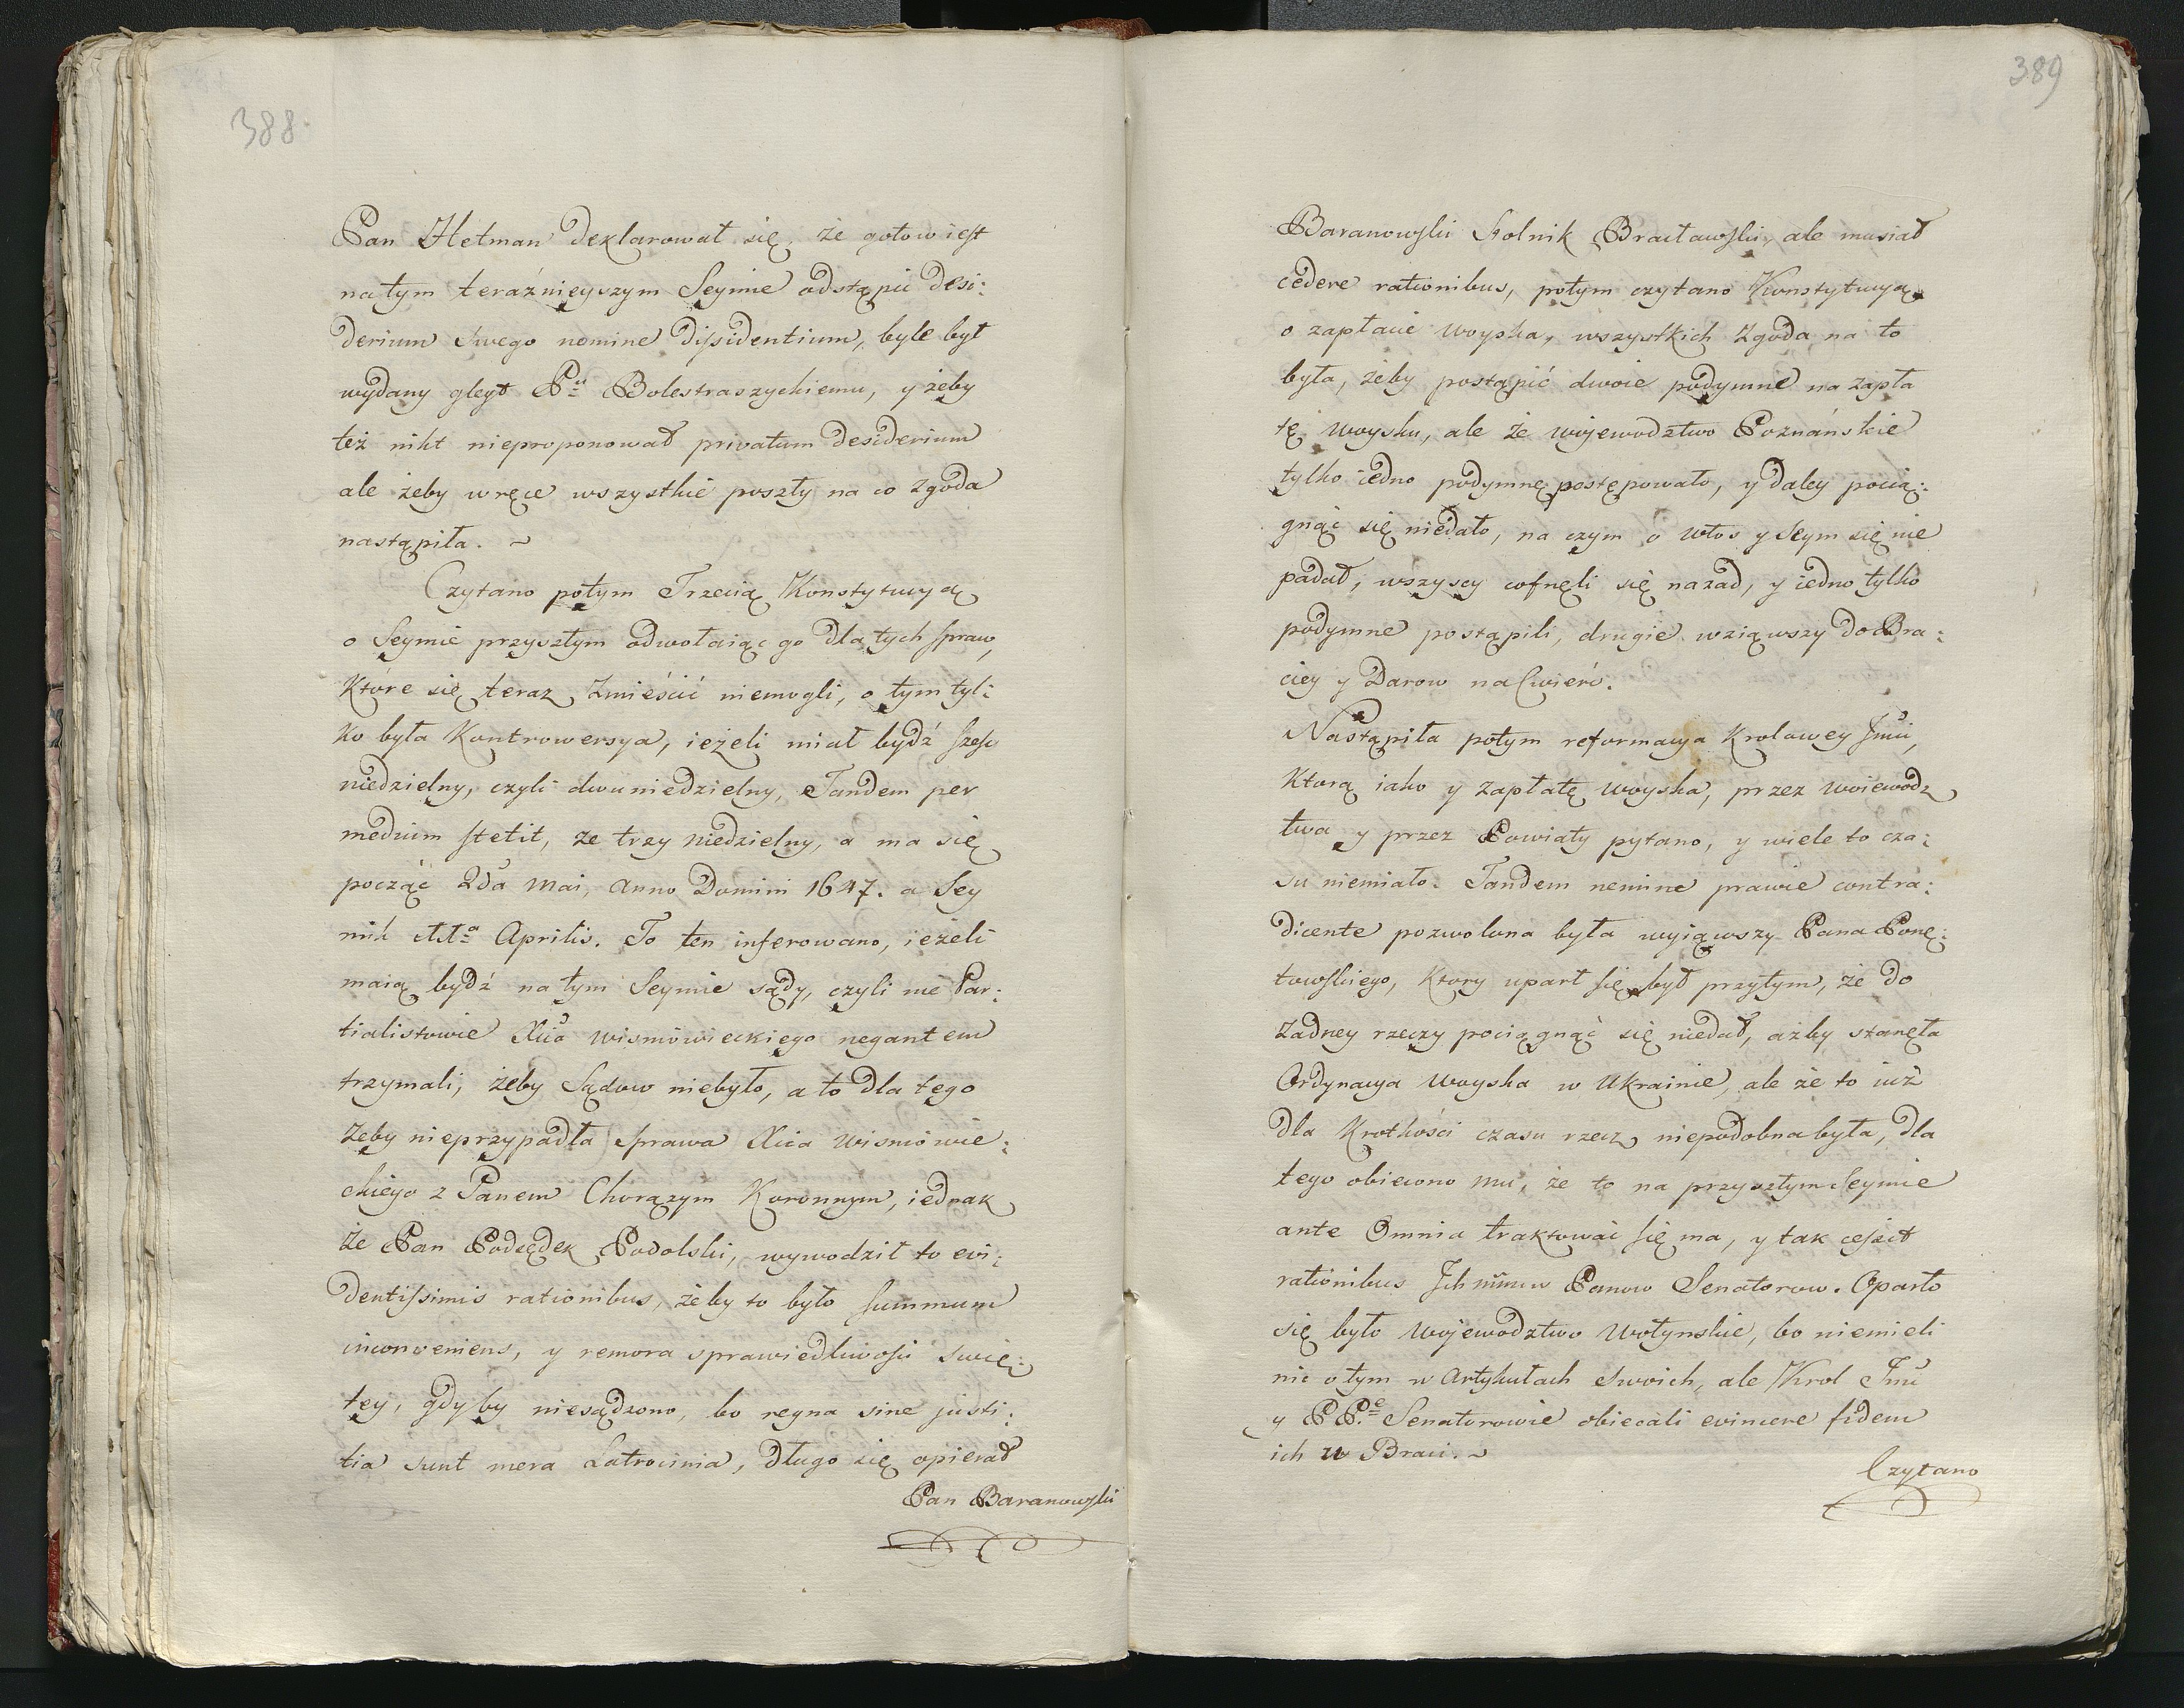 388.
Pan Hetman deklarował się, że gotow iest
natym teraźnieyszym Seymie odstąpić desi:
derium swego nomine Dissidentium, byle był
wydany gleyt P:u Bolestraszyckiemu, y żeby
też nikt nieproponował privatum desiderium
ale żeby wręce wszystkie poszły na co zgoda
nastąpiła. ~
Czytano potym Trzecią Konstytucyą
o Seymie przyszłym odwołaiąc go dla tych spraw,
które się teraz zmieścić niemogli, o tym tyl:
ko była Kontrowersya, ieżeli miał bydź sześc
niedzielny, czyli dwuniedzielny, Tandem per
medium stetit, że trzy niedzielny, a ma się
począć 2da Mai, Anno Domini 1647. a Sey
mik Aprilis. To ten inferowano, ieżeli
maią bydź na tym Seymie sądy, czyli nie Par:
tialistowie Xcia Wisniowieckiego negantem
trzymali, żeby Sądow niebyło, a to dla tego
żeby nieprzypadła sprawa Xcia Wisniowie:
ckiego z Panem Chorążym Koronnym, iednak
że Pan Podsędek Podolski, wywodził to evi:
dentissimis rationibus, żeby to było summum
inconveniens, y remora sprawiedliwości swię:
tey, gdyby niesądzono, bo regna sine justi:
tia sunt mera Latrocinia, długo się opierał
Pan Baranowski
389
Baranowski Stolnik Bracławski, ale musiał
cedere rationibus, potym czytano Konstytucyą
o zapłacie woyska, wszystkich zgoda na to
była, żeby postąpić dwoie podymne na zapła
tę woysku, ale że wojewodztwo Poznańskie
tylko iedno podymne postępowało, y daley pocią:
gnąć się niedało, na czym o włos y Seym się nie
padał, wszyscy cofnęli się nazad, y iedno tylko
podymne postąpili, drugie wziąwszy do Bra:
ciey y Darow na Cwierć.
Nastąpiła potym reformacya Krolowey Jmci,
ktorą iako y zapłatę woyska, przez woiewodz
twa y przez Powiaty pytano, y wiele to cza:
su niemiało. Tandem nemine prawie contra:
dicente pozwolona była wyiąwszy Pana Ponę:
towskiego, ktory uparł się był przytym, że do
żadney rzeczy pociągnąć się niedał, ażby stanęła
Ordynacya woyska w Ukrainie, ale że to iuż
dla krotkości czasu rzecz niepodobna była, dla
tego obiecono mu, że to na przyszłym Seymie
ante Omnia traktować się ma, y tak cessit
rationibus Ichmmw Panow Senatorow. Oparło
się było Wojewodztwo Wołynskie, bo niemieli
nic o tym w Artykułach swoich, ale Krol Jmć
y PP:e Senatorowie obiecali evincere fidem
ich u Braci. ~
Czytano